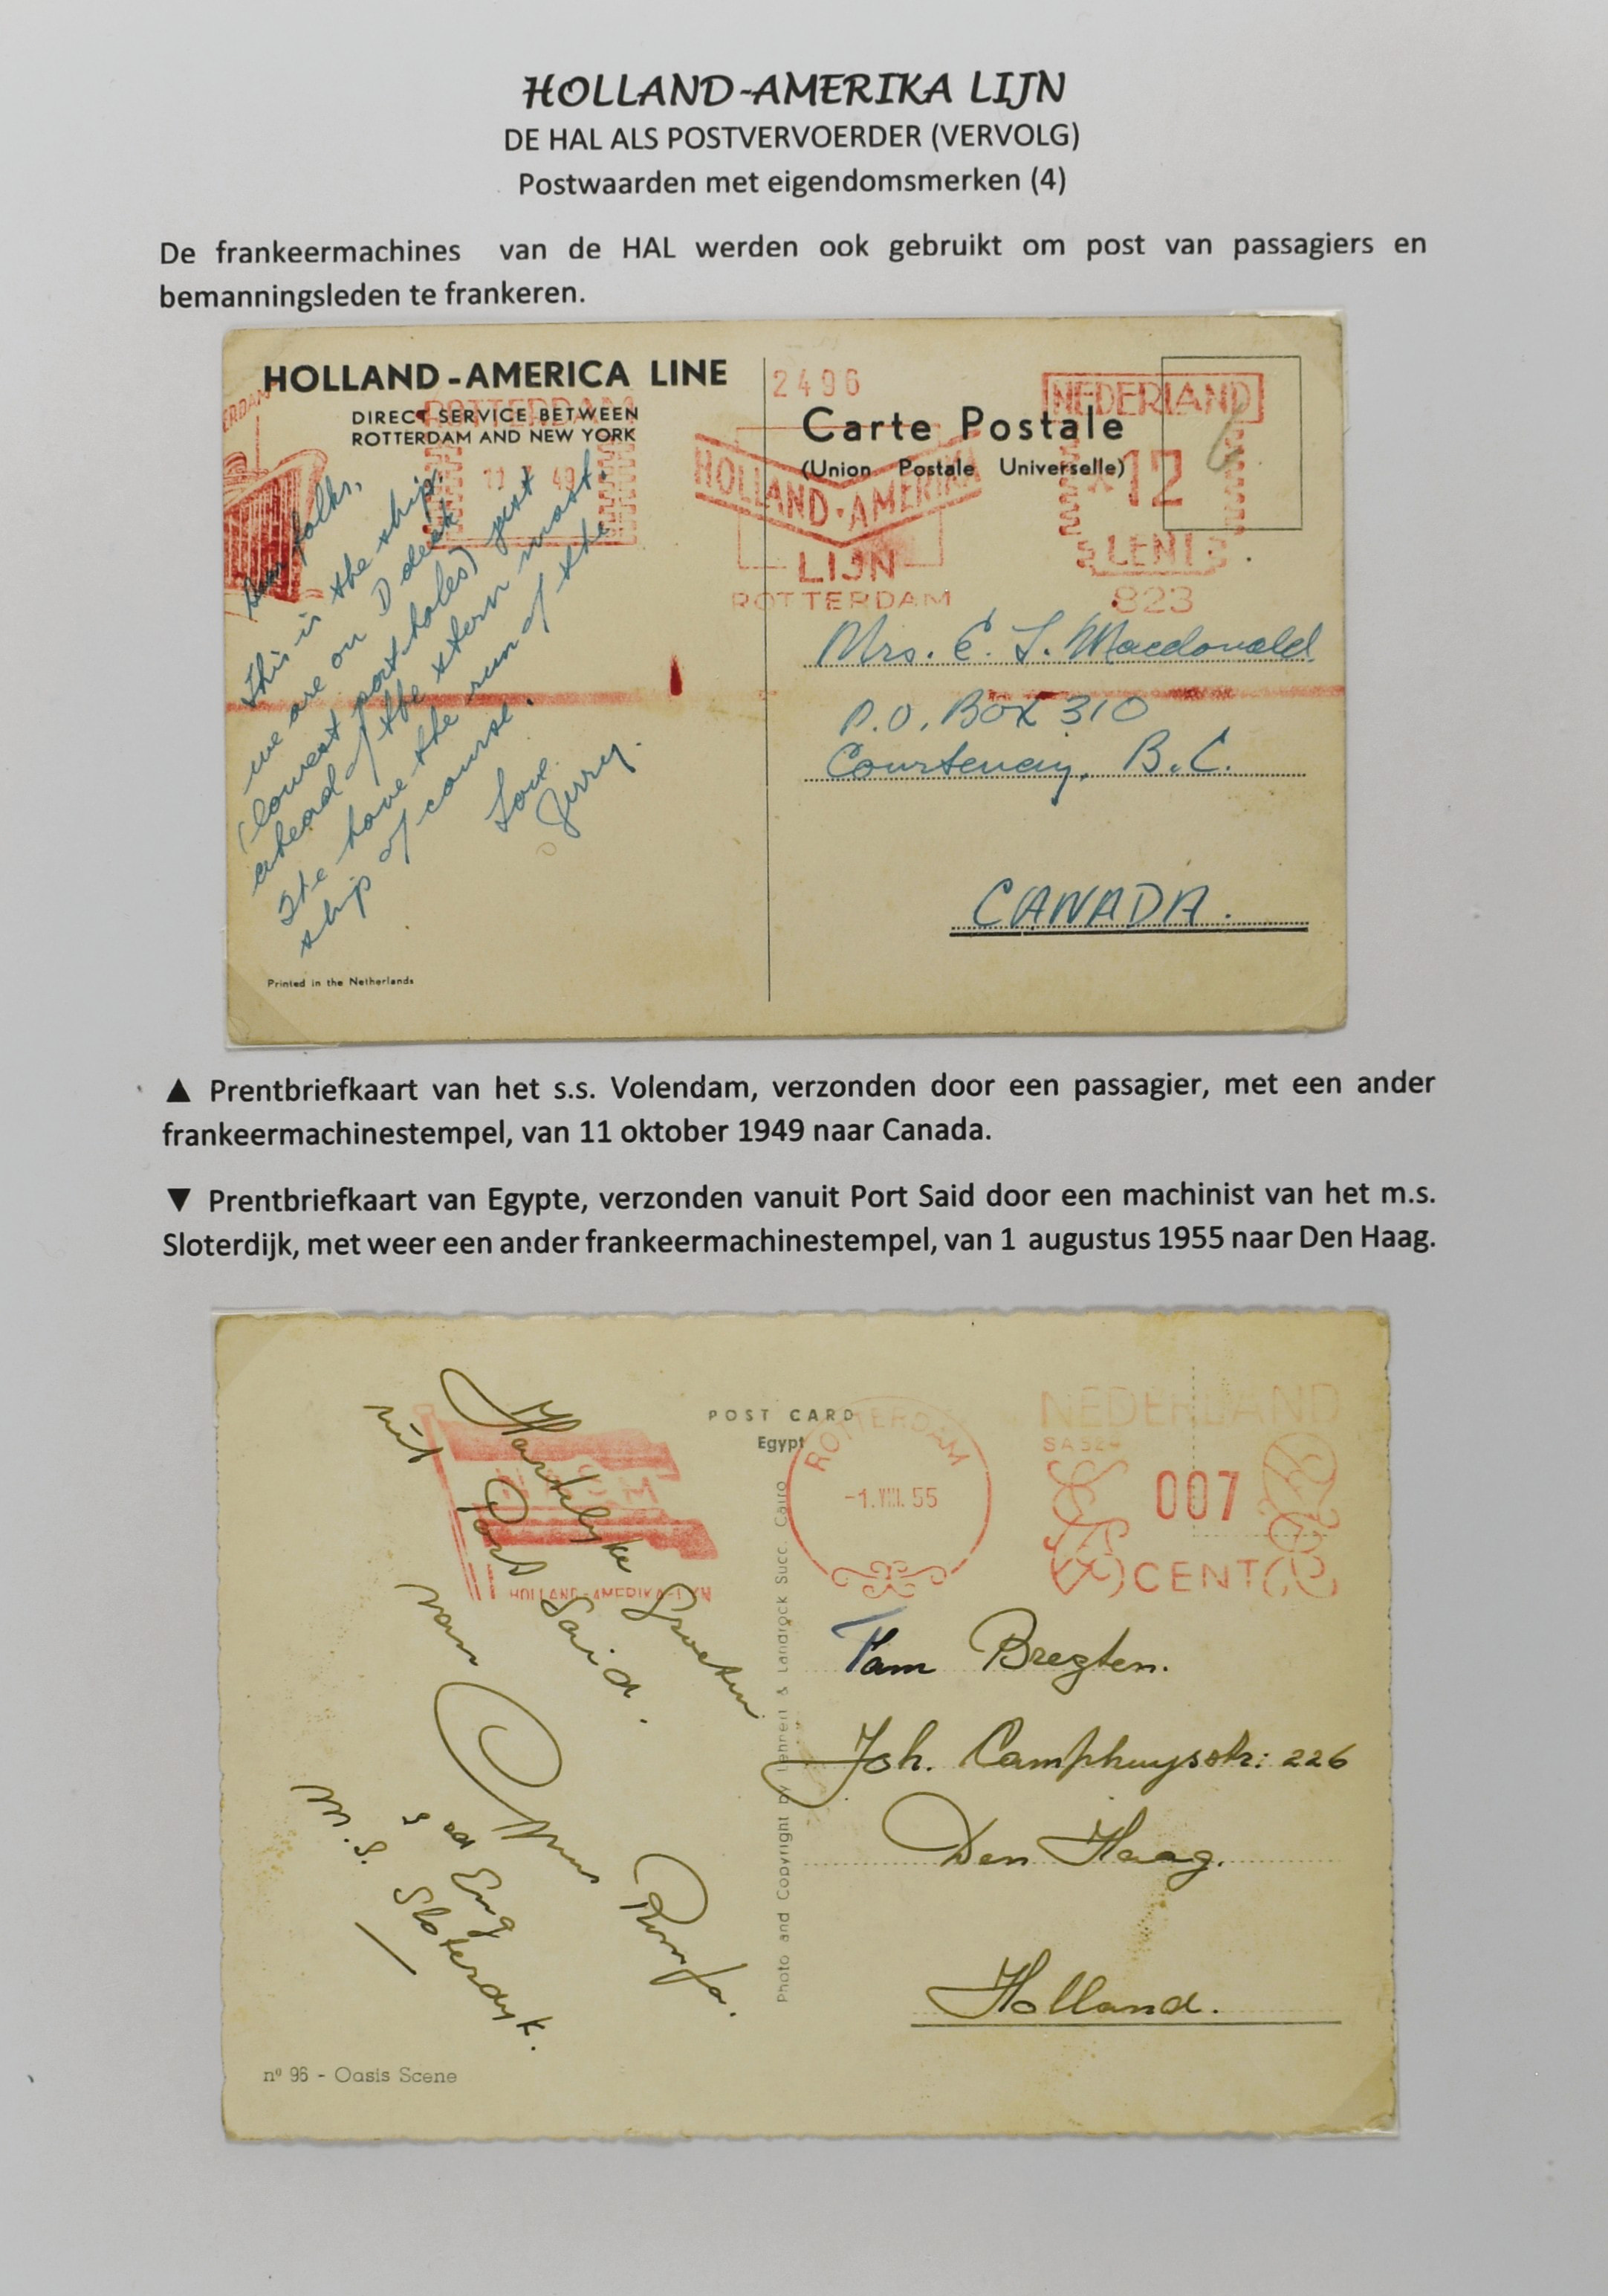 HOLLAND-AMERIKA LIJN
DE HAL ALS POSTVERVOERDER (VERVOLG)
Postwaarden met eigendomsmerken (4)
De frankeermachines van de HAL werden ook gebruikt om post van passagiers en
bemanningsleden te frankeren.
HOLLAND-AMERICA LINE
DIRECT SERVICE BETWEEN
ROTTERDAM AND NEW YORK
ERDAM
ROTTERDAM
11 49
2496
HOLLAND-AMERIKA
LIJN
ROTTERDAM
NEDERLAND
12
CENT
823
Carte Postale
(Union Postale Universelle)
Dear folks,
This is the ship.
we are on D deck
(lowest port-holes) just
ahead of the stern mast.
We have the run of the
ship of course.
Love.
Jerry.
Mrs. E. L. Macdonald
P.O. Box 310
Courtenay, B.C.
CANADA.
Printed in the Netherlands
▲ Prentbriefkaart van het s.s. Volendam, verzonden door een passagier, met een ander
frankeermachinestempel, van 11 oktober 1949 naar Canada.
▼ Prentbriefkaart van Egypte, verzonden vanuit Port Said door een machinist van het m.s.
Sloterdijk, met weer een ander frankeermachinestempel, van 1 augustus 1955 naar Den Haag.
POST CARD
Egypt
N A S M
HOLLAND-AMERIKA-LIJN
ROTTERDAM
-1.VIII.55
NEDERLAND
007
CENT
Hartelyke Groeten
uit Port Said.
van
M.S. Sloterdyk.
Photo and Copyright by Lehnert & Landrock Succ. Cairo
Fam Bregten.
Joh. Camphuysstr: 226
Den Haag.
Holland.
nº 96 - Oasis Scene